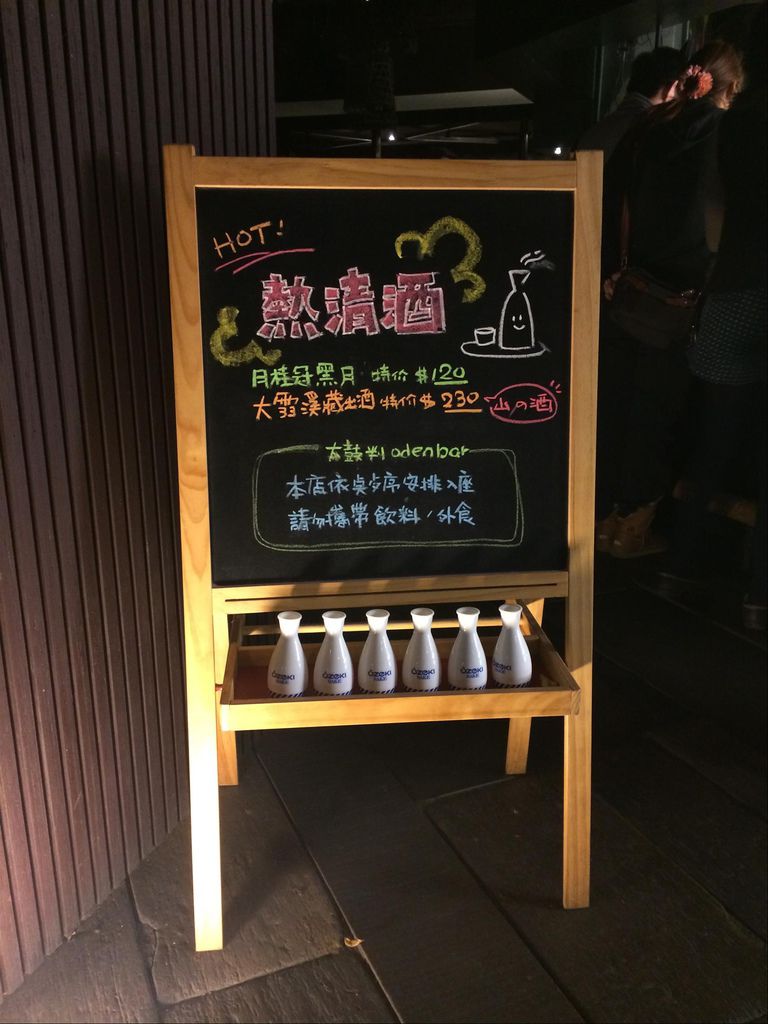 HOT!
熱清酒
月桂冠黑月 特价 $120
大雪溪藏出酒 特价 $ 230 山の酒
太鼓判 odenbar
本店依桌序安排入座
請勿攜帶飲料/外食
OZEKI SAKE
OZEKI SAKE
OZEKI SAKE
OZEKI SAKE
OZEKI SAKE
OZEKI SAKE